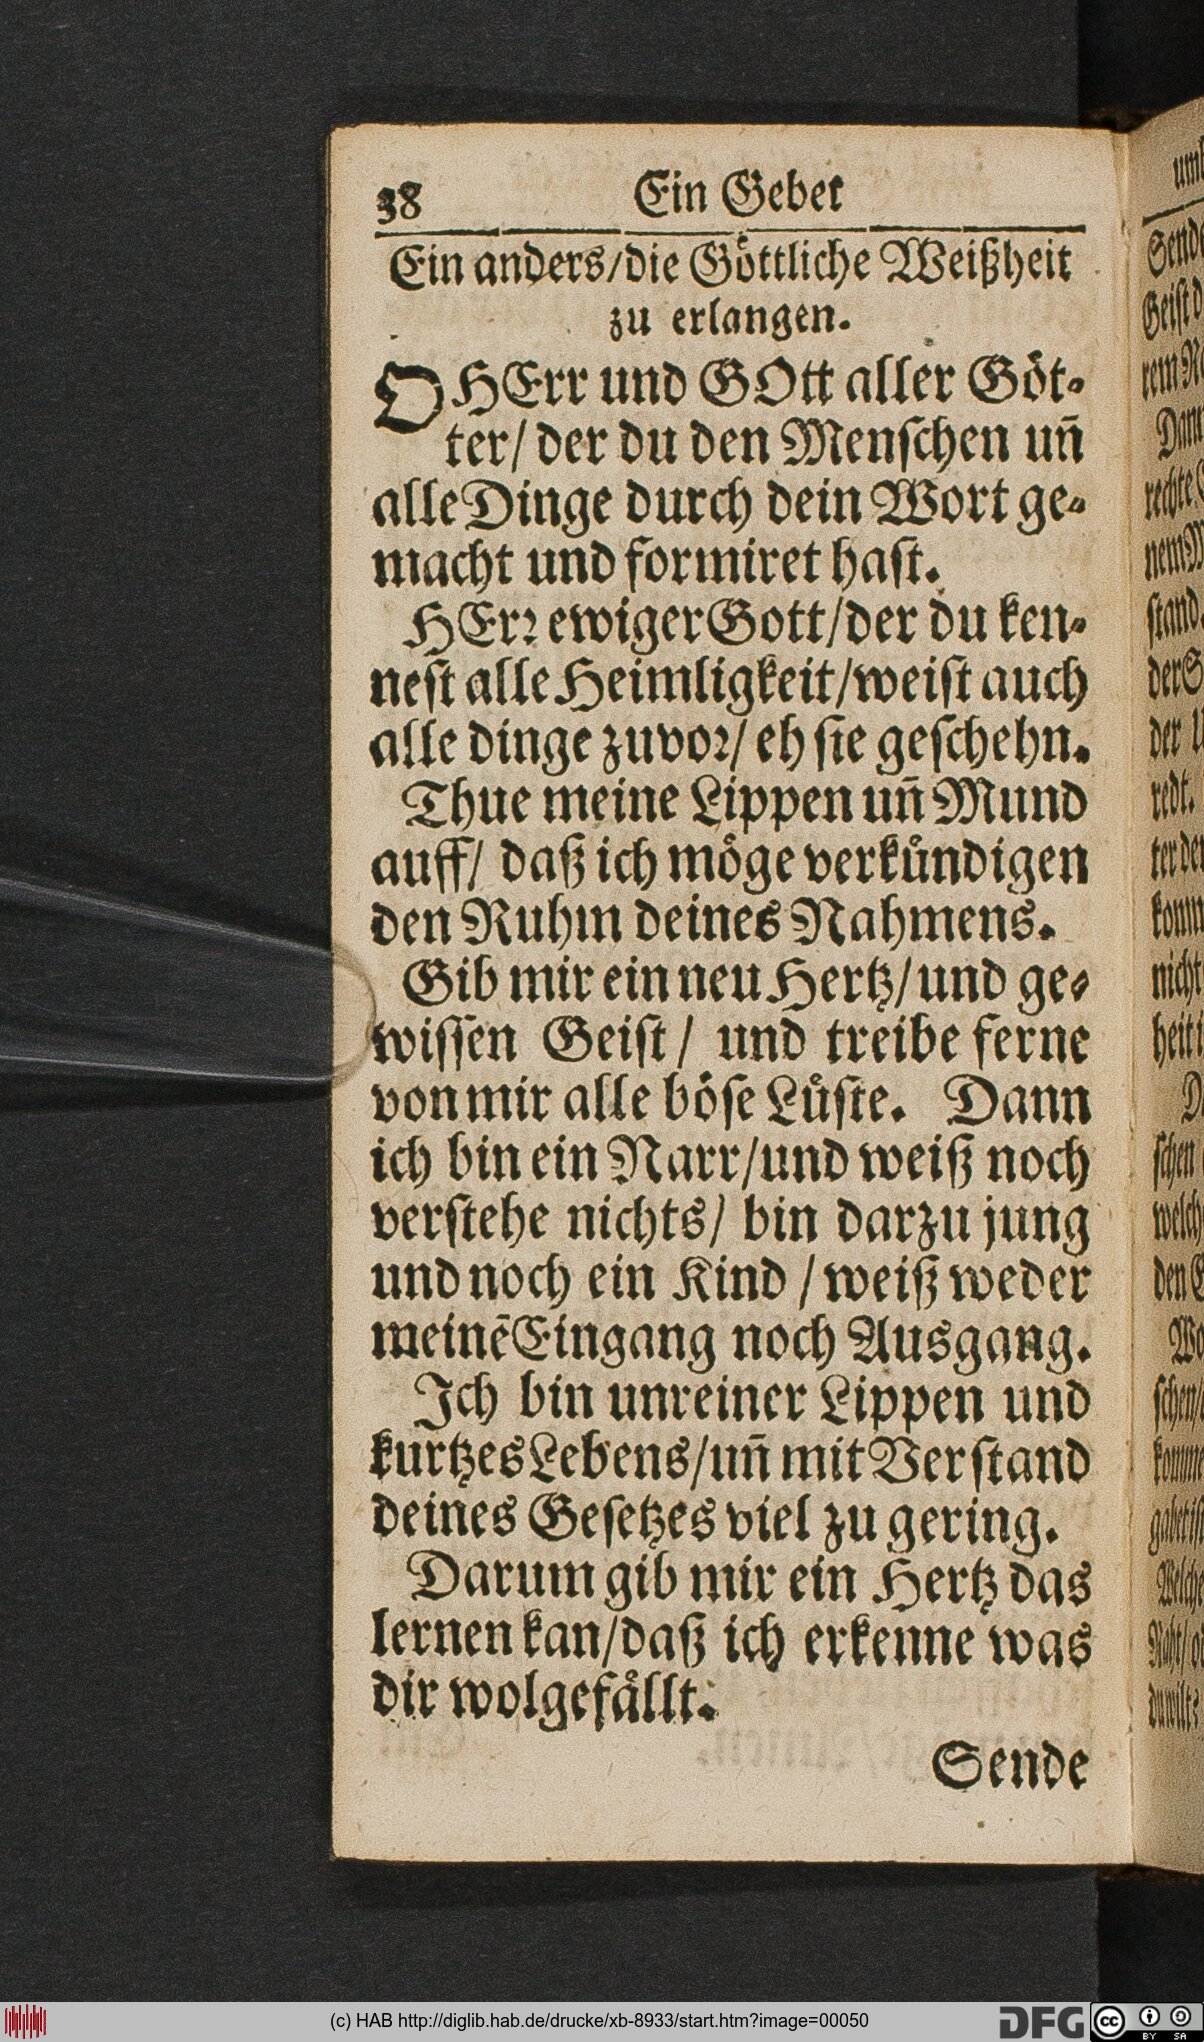 38 Ein Gebet
Ein anders/die Göttliche Weißheit
zu erlangen.
O HErr und GOtt aller Göt-
ter/ der du den Menschen uñ
alle Dinge durch dein Wort ge-
macht und formiret hast.
HErr ewiger Gott/der du ken-
nest alle Heimligkeit/weist auch
alle dinge zuvor/ eh sie geschehn.
Thue meine Lippen uñ Mund
auff/ daß ich möge verkündigen
den Ruhm deines Nahmens.
Gib mir ein neu Hertz/und ge-
wissen Geist/ und treibe ferne
von mir alle böse Lüste. Dann
ich bin ein Narr/und weiß noch
verstehe nichts/ bin darzu jung
und noch ein Kind / weiß weder
meinē Eingang noch Ausgang.
Ich bin unreiner Lippen und
kurtzes Lebens/uñ mit Verstand
deines Gesetzes viel zu gering.
Darum gib mir ein Hertz das
lernen kan/daß ich erkenne was
dir wolgefällt.
Sende
(c) HAB http://diglib.hab.de/drucke/xb-8933/start.htm?image=00050
DFG cc BY SA